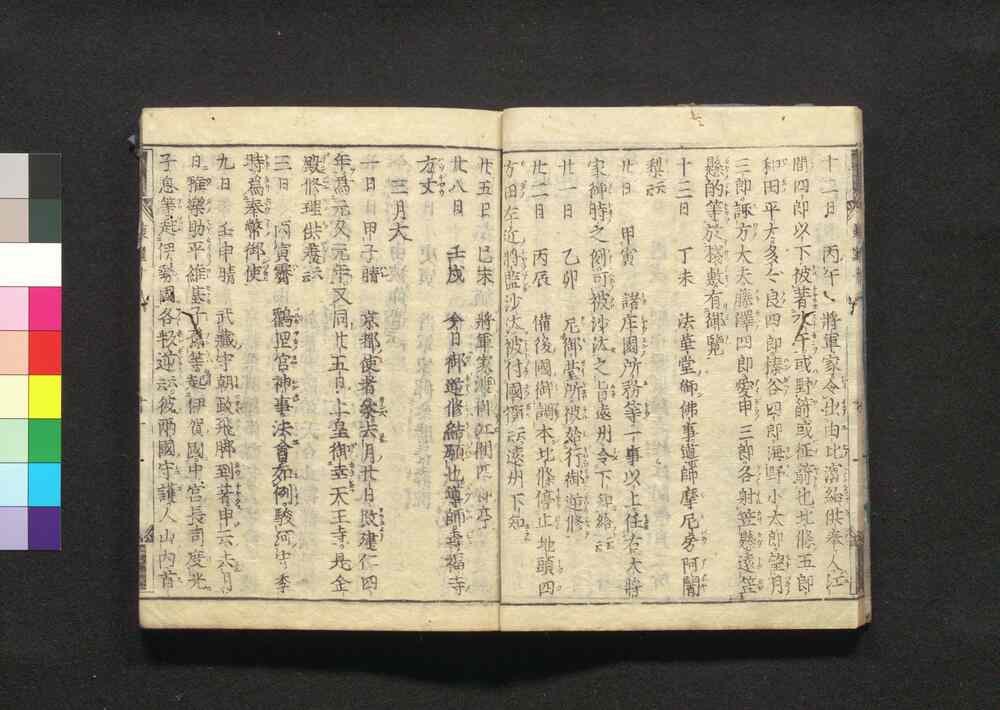 十二日 丙午 將軍家令出由比濱給供奉人江
間四郎以下被著水干或野箭或征箭也北條五郎
和田平太多々良四郎榛谷四郎海野小太郎望月
三郎諏方大夫藤澤四郎愛甲三郎各射笠懸遠笠
懸的等於棧敷有御覽
十三日 丁未 法華堂御佛事導師摩尼房阿闍
梨云云
廿日 甲寅 諸庄園所務等事以上任右大將
家御時之例可被沙汰之旨遠州令下知給云云
廿一日 乙卯 尼御臺所被始行御逆修
廿二日 丙辰 備後國御調本北條停止地頭四
方田左近將監沙汰被付國衙云云遠州下知
廿五日 己未 將軍家渡御
廿八日 壬戌 今日御逆修結願也導師壽福寺
方丈
三月大
一日 甲子晴 京都使者參去月廿日改建仁四
年爲元久元年又同廿五日上皇御幸天王寺是金
堂修理供養云云
三日 丙寅霽 鶴岡宮神事法會如例駿河守季
時爲奉幣御使
九日 壬申晴 武藏守朝政飛脚到著申云去月
日雅樂助平維基子孫等起伊賀國中宮長司度光
子息等起伊勢國各叛逆云云彼兩國守護人山内首